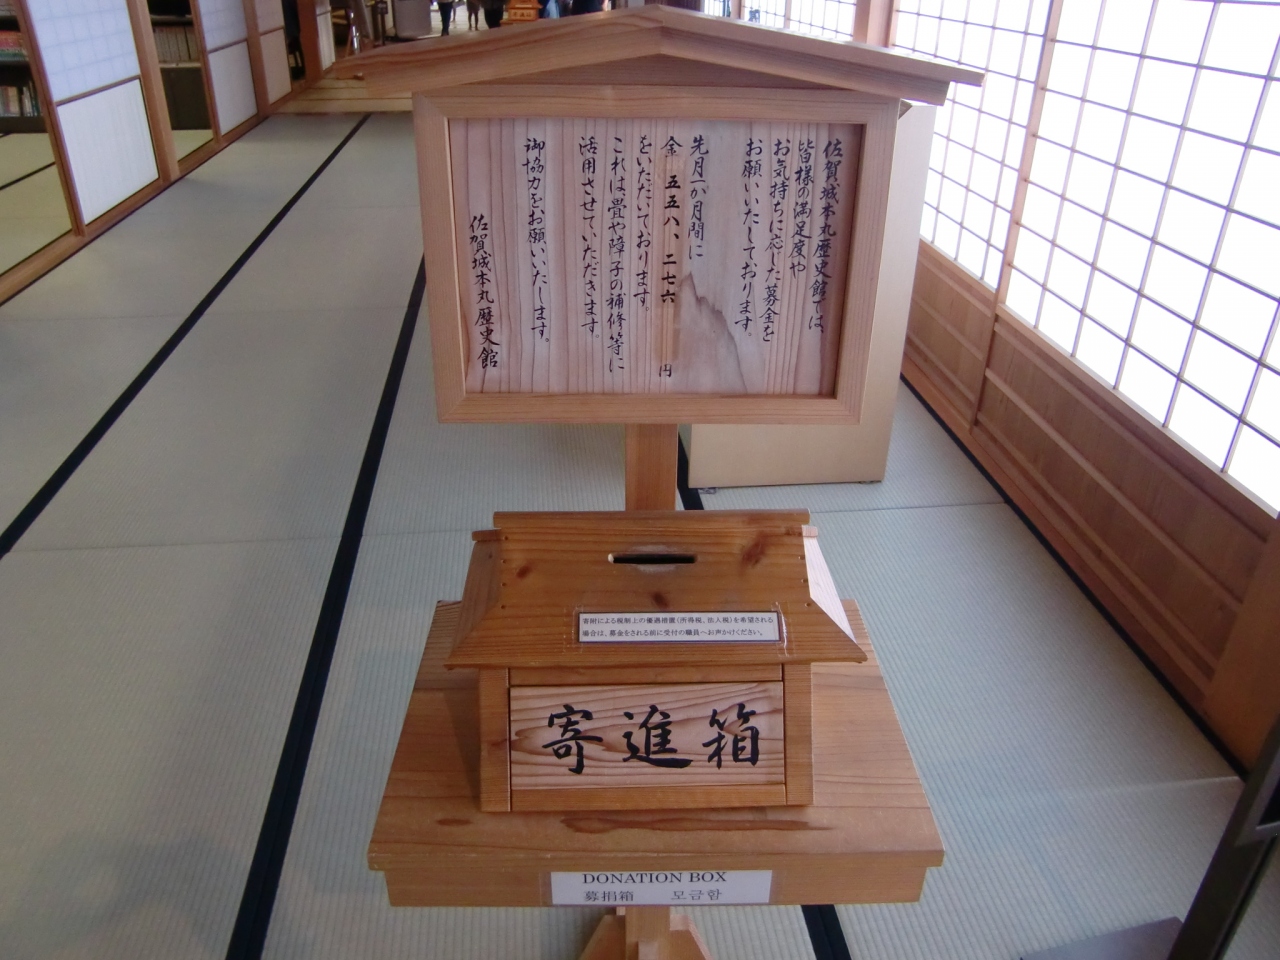 佐賀城本丸歴史館では、
皆様の満足度や
お気持ちに応じた募金を
お願いいたしております。
先月一か月間に
金 五五八、二七六 円
をいただいております。
これは、畳や障子の補修等に
活用させていただきます。
御協力をお願いいたします。
佐賀城本丸歴史館
寄附による税制上の優遇措置(所得税、法人税)を希望される
場合は、募金をされる前に受付の職員へお声かけください。
寄進箱
DONATION BOX
募捐箱 모금함